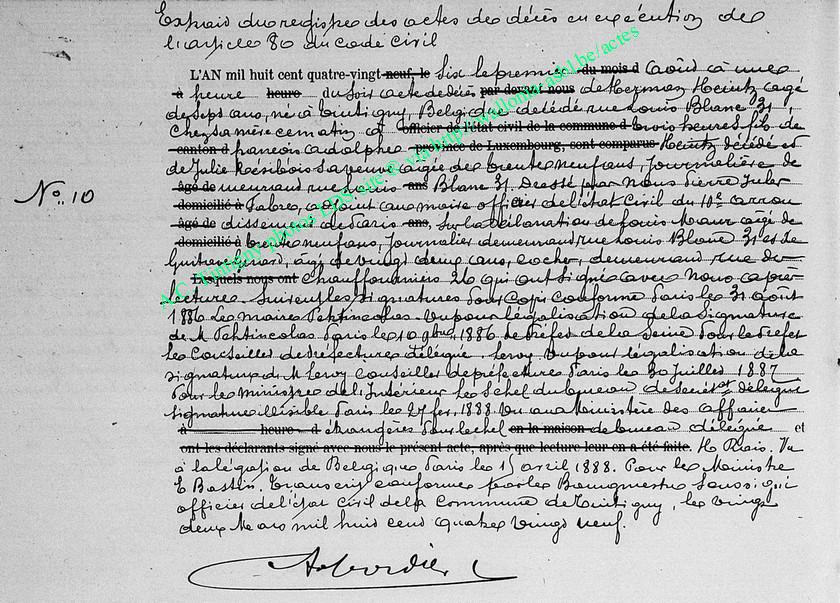 Extrait du registre des actes de décès en exécution de
l'article 80 du code civil
L'AN mil huit cent quatre-vingt neuf, le Six le premier du mois d Août à une
à heure heure du soir acte de décès par devant nous de Herman Heintz agé
de sept ans, né à Tintigny, Belgique décédé rue Louis Blanc 31,
chez sa mère ce matin à officier de l'état civil de la commune d trois heures fils de
canton d françois adolphe province de Luxembourg, sont comparus Heintz décédé et
de Julie sa veuve agée de trente neuf ans, journalière de
No. 10
âgé de meurant rue Louis ans Blanc 31. Dressé par Nous Pierre Jules
domicilié à adjoint au maire officier de l'état Civil du 10e arron
âgé de dissement de Paris ans, sur la déclaration de Louis agé de
domicilié à trente neuf ans, journalier demeurant rue Louis Blanc 31 et de
Gustave agé de vingt deux ans, cocher, demeurant rue de
Lesquels nous ont Chauffourniers 26 qui ont signé avec Nous après
lecture. Suivent les signatures Pour Copie conforme Paris le 31 août
1886 Le maire Vu pour légalisation de la Signature
de M Paris le 10 9bre 1886 le Préfet de la Seine Pour le Préfet
le Conseiller de Préfecture délégué. Leroy. Vu pour légalisation de la
signature de M Leroy Conseiller de préfecture Paris le 30 Juillet 1887
Pour le Ministre de l'Intérieur Le Chef du bureau délégué
signature illisible Paris le 27 1888 Vu au Ministère des affaires
à heure d étrangères Pour le chef en la maison de bureau délégué et
ont les déclarants signé avec nous le présent acte, après que lecture leur en a été faite. Vu
à la légation de Belgique Paris le 15 avril 1888. Pour le Ministre
E Bastin. Transcrit conforme par le Bourgmestre soussigné
officier de l'état Civil de la Commune de Tintigny, le vingt
deux Mars mil huit cent quatre vingt neuf.
A.C. Tintigny photos LDS site @ via http://wallonia.asbl.be/actes